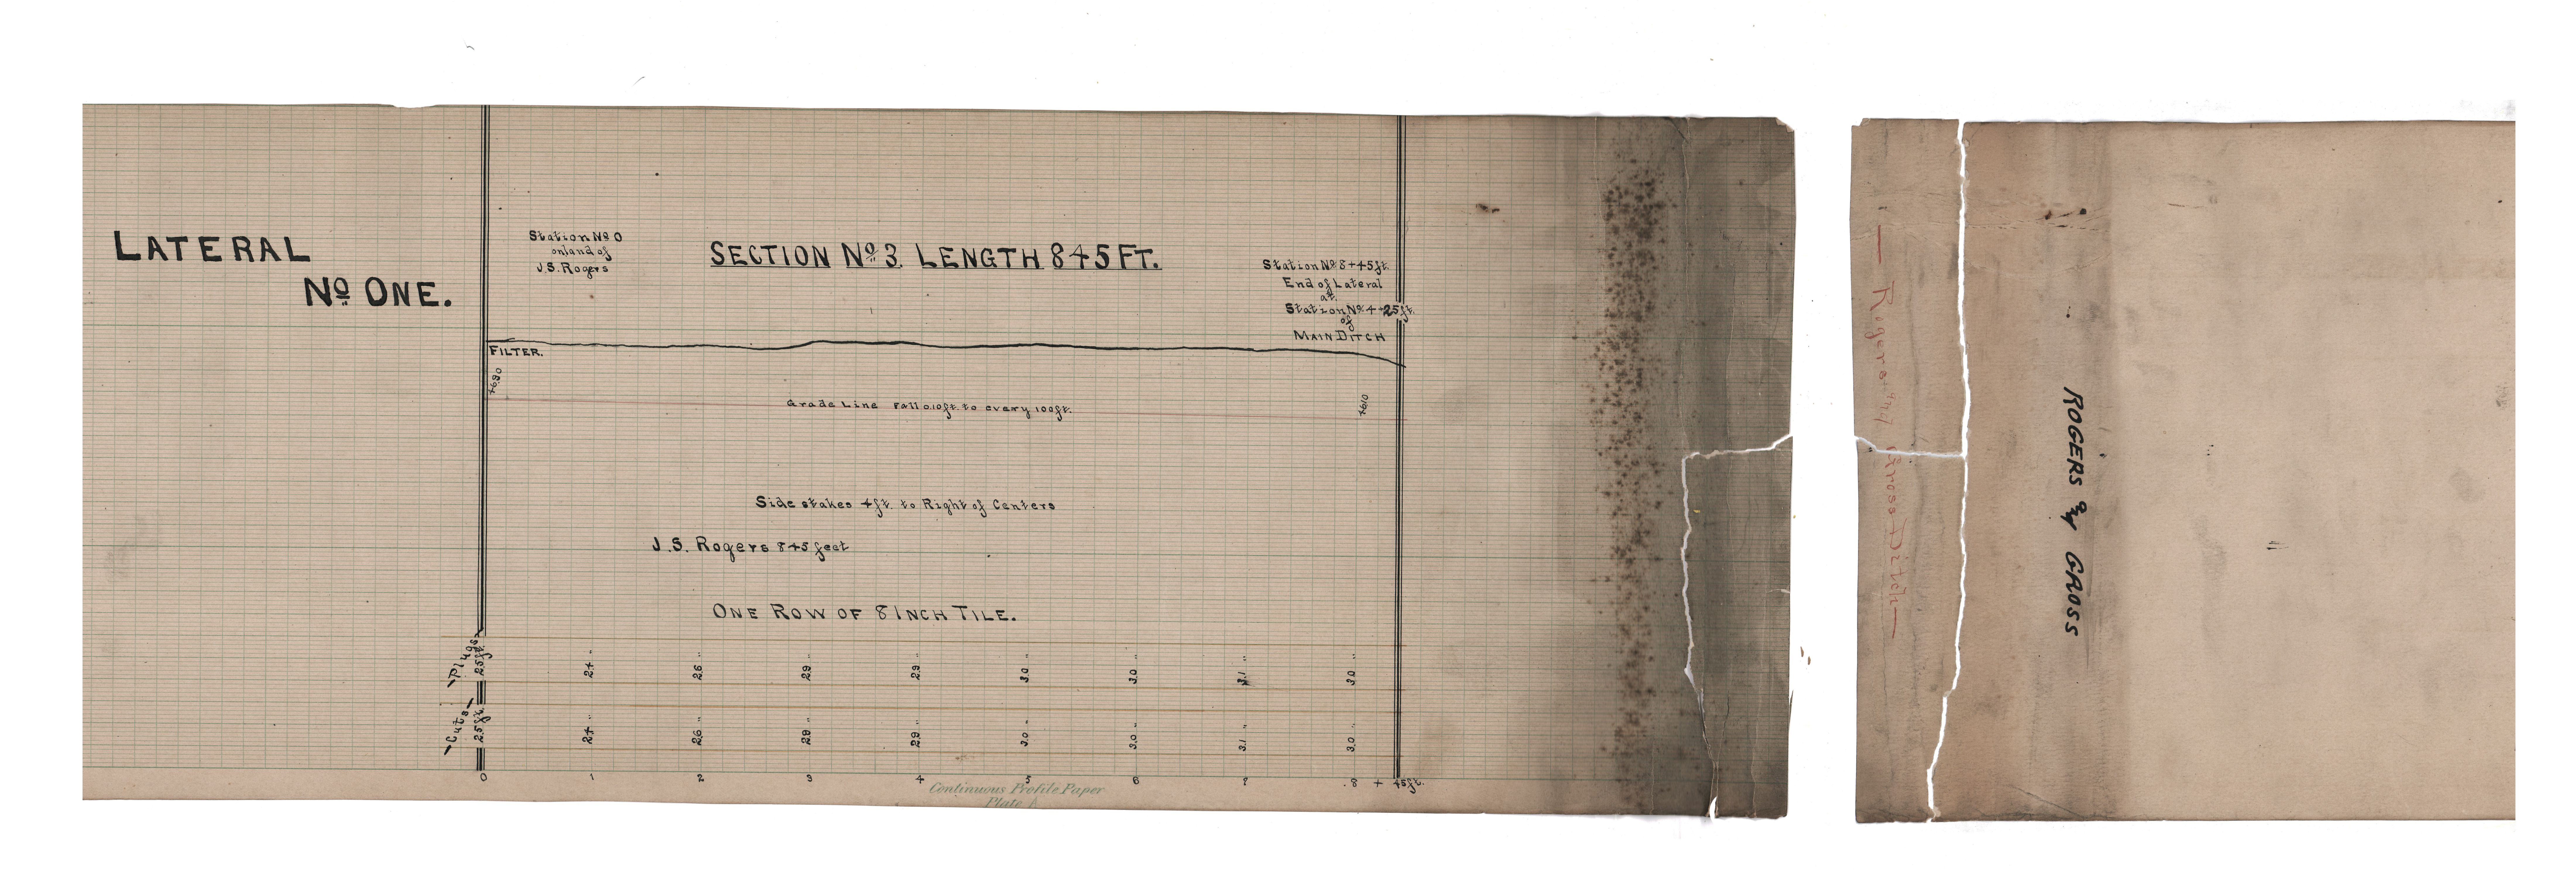 LATERAL
No ONE.
Station No 0
on land of
J.S. Rogers
SECTION No 3 LENGTH 845 FT.
Station No 8+45ft.
End of Lateral
at
Station No 4+25ft.
of
MAIN DITCH
FILTER.
Grade Line Fall 0.10ft. to every 100ft.
Side stakes 4ft. to Right of Centers
J.S. Rogers 845 feet
ONE ROW OF 8 INCH TILE.
Plugs
25ft. 24 " 26 " 29 " 29 " 30 " 30 " 31 " 30 "
Cuts
25ft. 24 " 26 " 28 " 29 " 30 " 30 " 31 " 30 "
0 1 2 3 4 5 6 7 8 + 45ft.
Continuous Profile Paper
Plate A
— Rogers and Gross Ditch —
ROGERS & GROSS